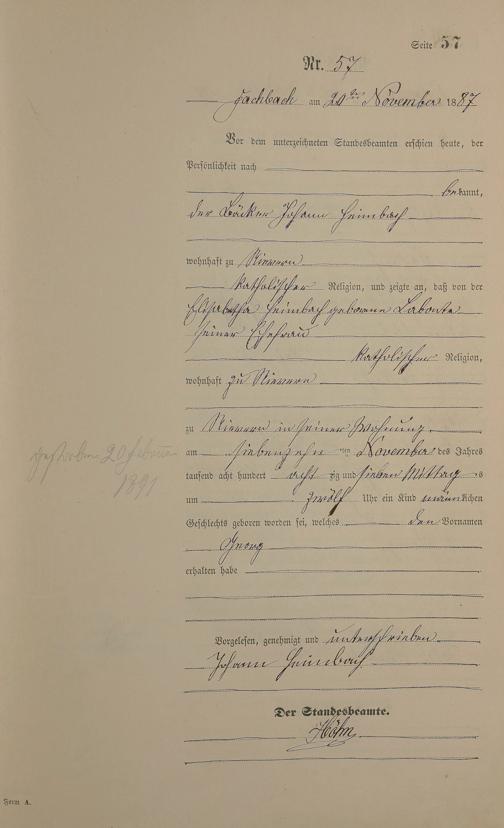 Seite 57
Nr. 57
Fachbach am 20ten November 1887
Vor dem unterzeichneten Standesbeamten erschien heute, der
Persönlichkeit nach
bekannt,
der Bäcker Johann Heimbach
wohnhaft zu Nievern
katholischer Religion, und zeigte an, daß von der
Elisabetha Heimbach geborene Labonte
seiner Ehefrau
katholischer Religion,
wohnhaft zu Nievern
zu Nievern in seiner Wohnung
am siebenzehnten November des Jahres
tausend acht hundert achtzig und sieben Mittags
um zwölf Uhr ein Kind männlichen
Geschlechts geboren worden sei, welches den Vornamen
Georg
erhalten habe
gestorben 20 Februar
1891
Vorgelesen, genehmigt und unterschrieben
Johann Heimbach
Der Standesbeamte.
Höhn
Form A.